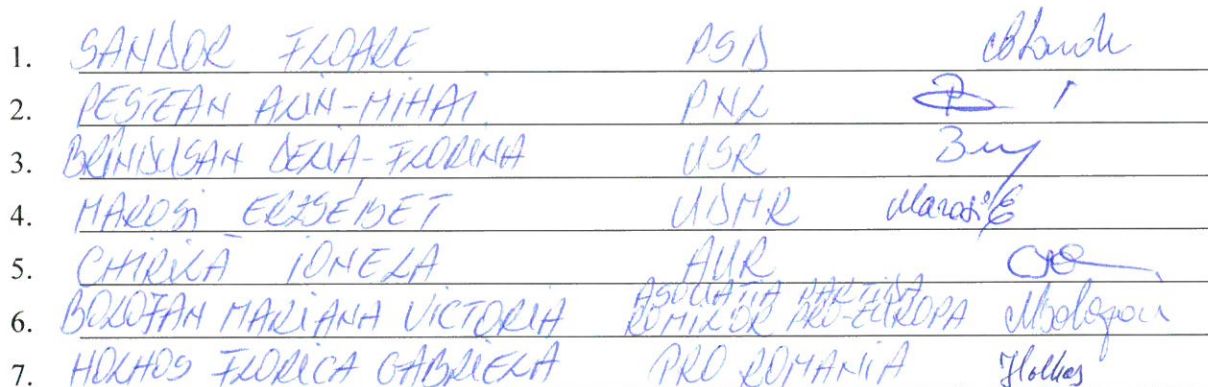 1. SANDOR FLOARE PSD
2. PESTEAN ALIN-MIHAI PNL
3. BRÎNDUSAN DELIA-FLORINA USR
4. MAROSI ERZSEBET UDMR Marosi E
5. CHIRILĂ IONELA AUR
6. BOLOJAN MARIANA VICTORIA ASOCIATIA PARTIDA ROMILOR PRO-EUROPA MBologan
7. HOLHOS FLORICA GABRIELA PRO ROMANIA Holhos